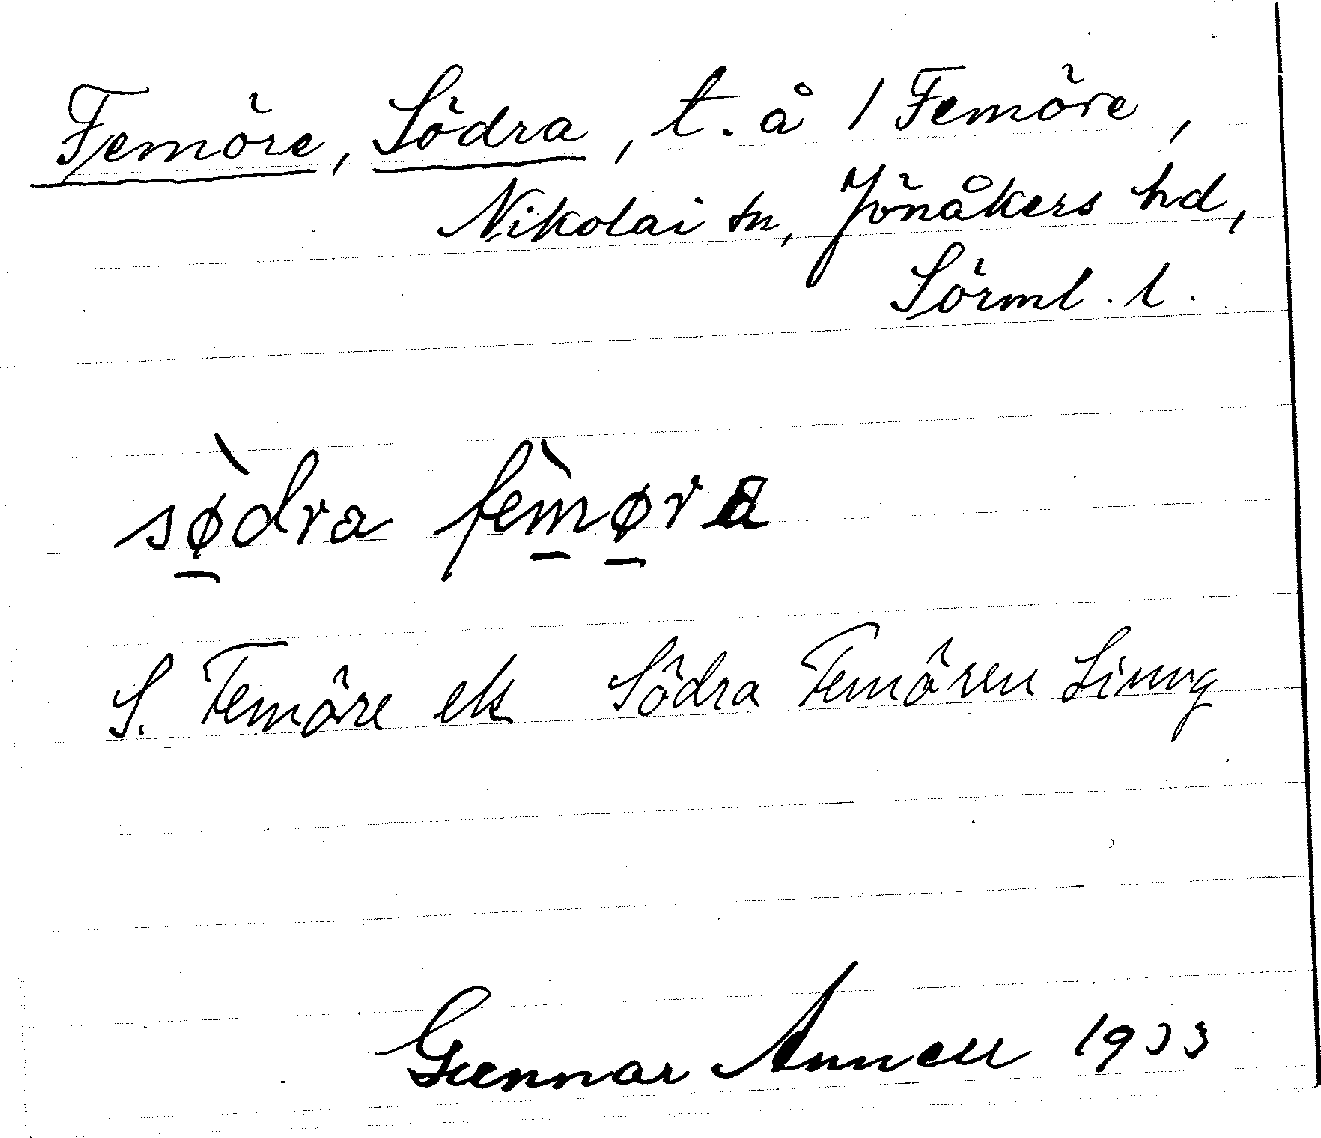 Femöre, Södra, t. å / Femöre,
Nikolai sn, Jönåkers hd,
Sörml. l.
sø̀dra fèmørɑ
S. Femöre ek Södra Femören
Gunnar Annell 1933